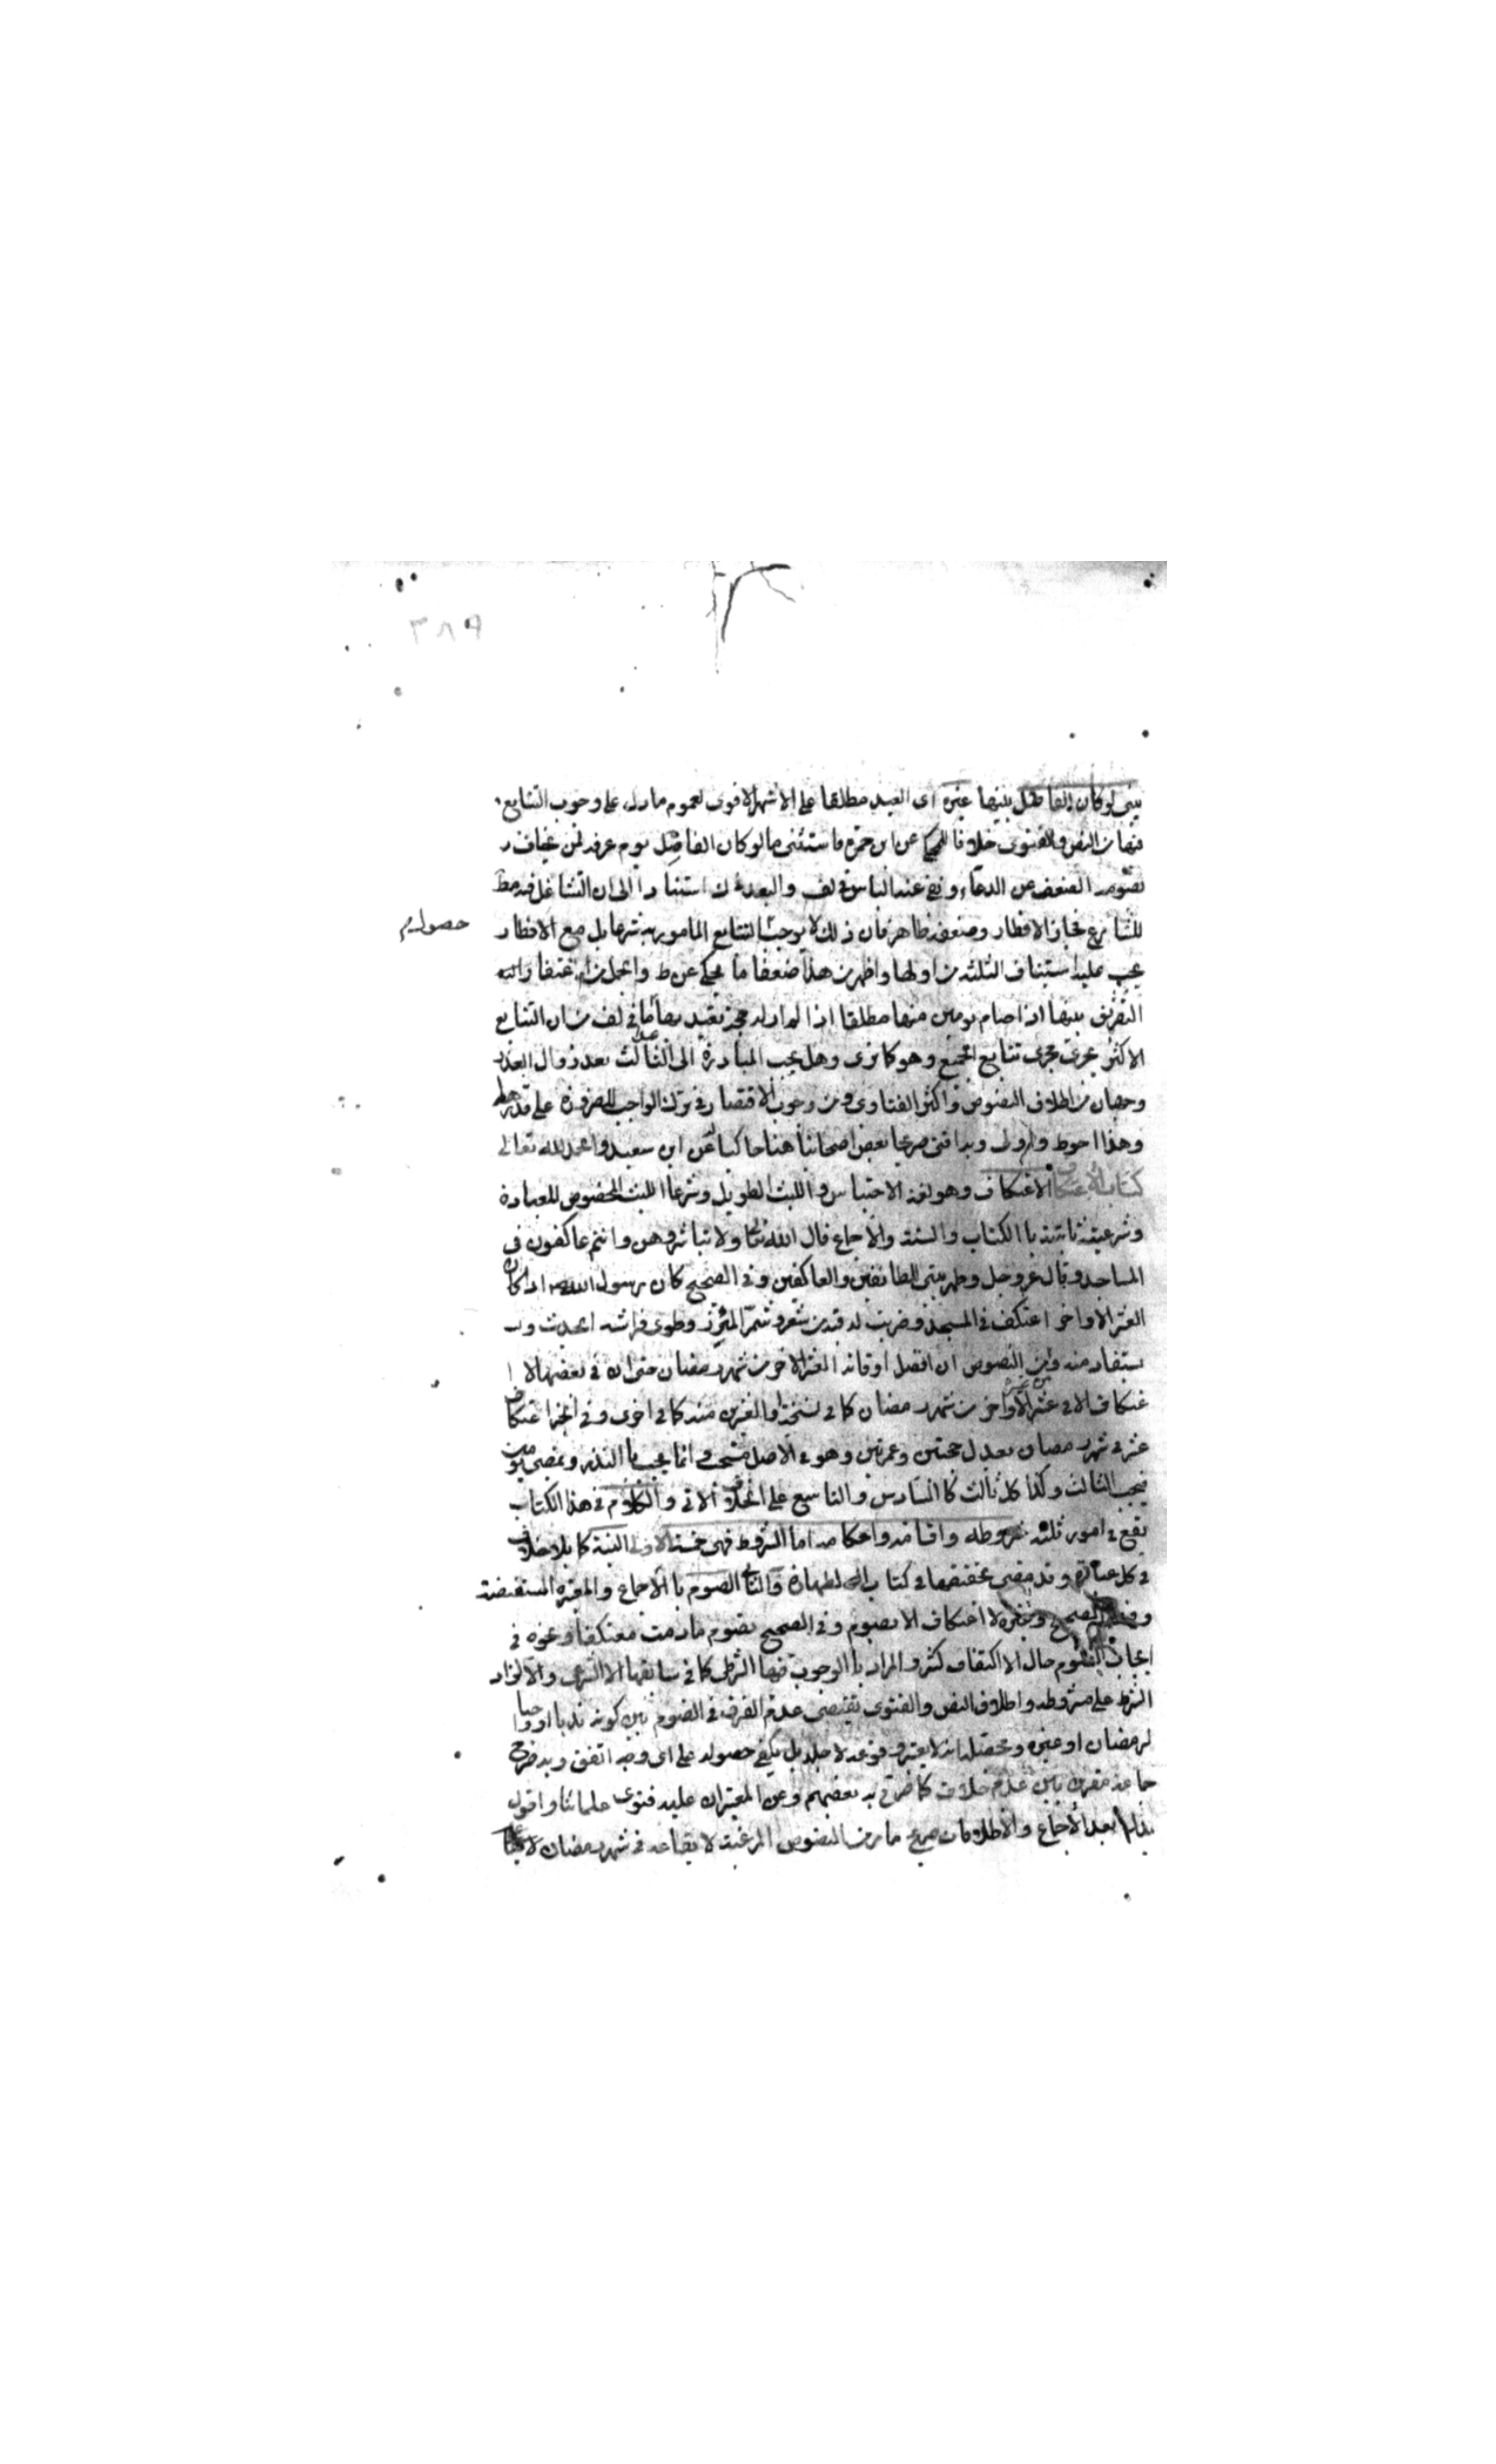 ٣٨٩
يبنى لو كان الفاصل بينها غيره اى العيد مطلقا على الاشهر الاقوى لعموم ما دل على وجوب التتابع
فيها من النص والفتوى خلافا للمحكى عن ابن حمزة فاستثنى ما لو كان الفاصل يوم عرفة لمن يخاف
بصومه الضعف عن الدعاء ونفى عنه الباس فى لف استنادا الى ان التشاغل فيه مط
للشارع فجاز الافطار وضعفه ظاهر فان ذلك لا يوجب التتابع المامور به شرعا بل مع الافطار
حصوله م
يجب عليه استيناف الثلثة من اولها واظهر من هذا ضعفا ما يحكى عن ط والجمل من اغتفار
التفريق بينها اذا صام يومين منها مطلقا اذ لم ار له حجة يعتد بها ما فى لف من ان التتابع
الاكثر يجرى مجرى تتابع الجميع وهو كما ترى وهل يجب المبادرة الى الثالث بعد زوال العذر
وجهان من اطلاق النصوص واكثر الفتاوى ومن وجوب الاقتصار فى ترك الواجب للضرورة على قدرها
وهذا احوط واولى وبه افتى صريحا بعض اصحابنا هنا حاكيا له عن ابن سعيد والحمد لله تعالى
كتاب الاعتكاف وهو لغة الاحتباس واللبث الطويل وشرعا اللبث المخصوص للعبادة
وشرعيته ثابتة با الكتاب والسنة والاجماع قال الله تعالى ولا تباشروهن وانتم عاكفون فى
المساجد وقال عز وجل وطهر بيتى للطائفين والعاكفين وفى الصحيح كان رسول الله اذا كان
العشر الاواخر اعتكف فى المسجد وضربت له قبة من شعر وشمر المئزر وطوى فراشه الحديث و
يستفاد منه ومن النصوص ان افضل اوقاته العشر الاخر من شهر رمضان حتى ان فى بعضها لا ا
عتكاف الا فى عشر الاواخر من شهر رمضان كما فى نسخة او العشرين منه كما فى اخرى وفى الخبر اعتكاف
عشر فى شهر رمضان يعدل حجتين وعمرتين وهو فى الاصل مستحب وانما يجب با النذر وبمضى يومين
فيجب الثالث وكذا كل ثالث كا السادس والتاسع على الخلاف الاتى والكلام فى هذا الكتاب
يقع فى امور ثلثة شروطه واقسامه واحكامه اما الشروط فهى خمسة الاولى النية كا بلا خلاف
فى كل عبادة وقد مضى تحقيقها فى كتاب الطهارة والثانى الصوم با الاجماع والمعتبرة المستفيضة
الصحيح وغيره لا اعتكاف الا بصوم وفى الصحيح بصوم ما دمت معتكفا ونحوه فى
ايجاب الصوم حال الاعتكاف كثير والمراد با الوجوب فيها الشرطى كما فى سابقها لا الشرعى والا لزاد
الشرط على مشروطه واطلاق النص والفتوى يقتضى عدم الفرق فى الصوم بين كونه ندبا او واجبا
لرمضان او غيره ومقتضاه انه لا يعتبر وقوعه لاجله بل يكفى حصوله على اى وجه اتفق وبه صرح
جماعة مفهمين عدم خلاف كما صرح به بعضهم وعن المعتبر ان عليه فتوى علمائنا واقول
بعد الاجماع والاطلاقات صريح ما مر من النصوص المرغبة لايقاعه فى شهر رمضان